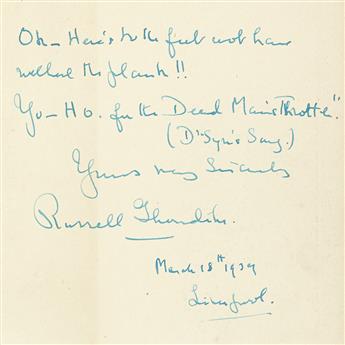 Oh - Here's to the feet wot have
walked the plank!!
Yo-Ho. for the Dead Man's Throttle".
(Dr Syn's Song.)
Yours very Sincerely
Russell Thorndike.
March 18th 1939
Liverpool.